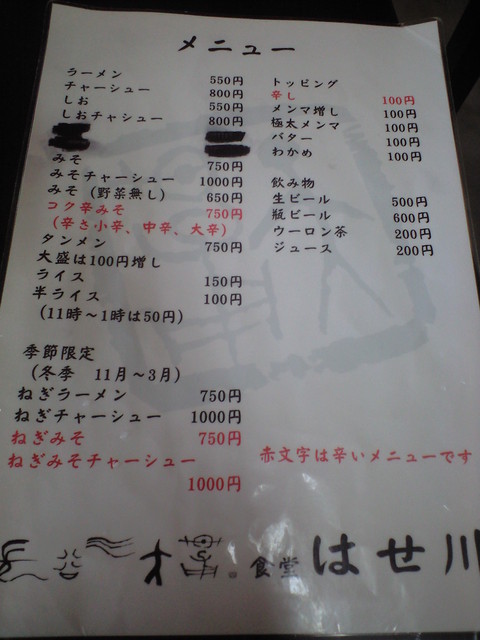 メニュー
ラーメン 550円
チャーシュー 800円
しお 550円
しおチャシュー 800円
みそ 750円
みそチャーシュー 1000円
みそ（野菜無し） 650円
コク辛みそ 750円
（辛さ小辛、中辛、大辛）
タンメン 750円
大盛は100円増し
ライス 150円
半ライス 100円
（11時～1時は50円）
季節限定
（冬季 11月～3月）
ねぎラーメン 750円
ねぎチャーシュー 1000円
ねぎみそ 750円
ねぎみそチャーシュー
1000円
トッピング
辛し 100円
メンマ増し 100円
極太メンマ 100円
バター 100円
わかめ 100円
飲み物
生ビール 500円
瓶ビール 600円
ウーロン茶 200円
ジュース 200円
赤文字は辛いメニューです
食堂 はせ川